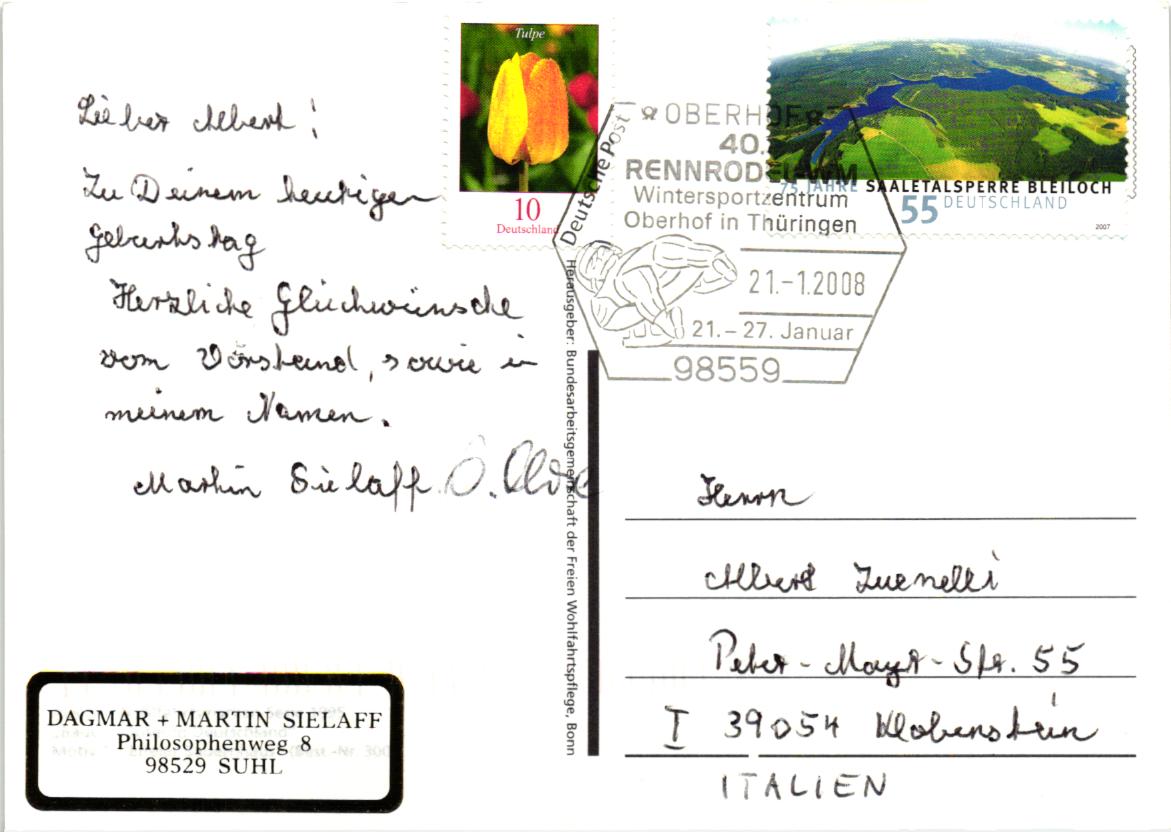 Lieber Albert!
Zu Deinem heutigen
Geburtstag
Herzliche Glückwünsche
vom Vorstand, sowie in
meinem Namen.
Martin Sielaff
DAGMAR + MARTIN SIELAFF
Philosophenweg 8
98529 SUHL
Tulpe
10
Deutschland
Deutsche Post
OBERHOF
40.
RENNRODEL-WM
Wintersportzentrum
Oberhof in Thüringen
21.-1.2008
21. – 27. Januar
98559
75 JAHRE SAALETALSPERRE BLEILOCH
55 DEUTSCHLAND
2007
Herausgeber: Bundesarbeitsgemeinschaft der Freien Wohlfahrtspflege, Bonn
Herrn
Albert
Peter-Mayr-Str. 55
I 39054 Klobenstein
ITALIEN